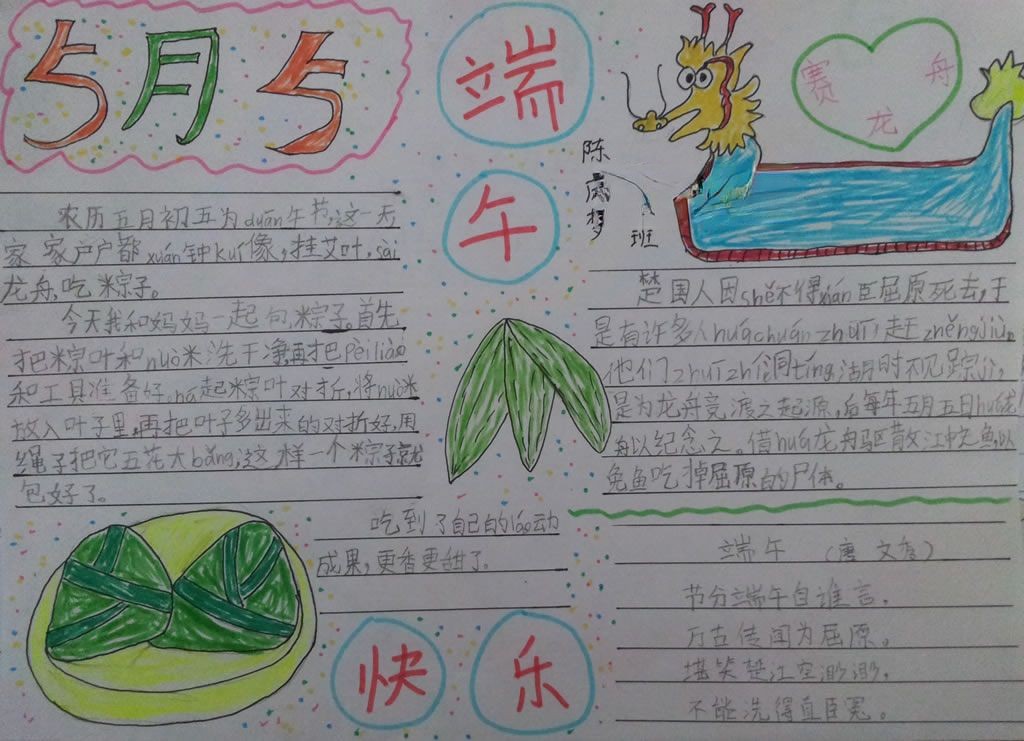 5月5
农历五月初五为duān午节,这一天
家家户户都xuán钟kuí像,挂艾叶,sài
龙舟,吃粽子。
今天我和妈妈一起包粽子。首先
把粽叶和nuò米洗干净,再把pèiliào
和工具准备好,ná起粽叶对折,将nuò米
放入叶子里,再把叶子多出来的对折好,用
绳子把它五花大bǎng,这样一个粽子就
包好了。
吃到了自己的láo动
成果,更香更甜了。
端
午
快 乐
赛 龙 舟
陈
梦
班
楚国人因shě不得xián臣屈原死去,于
是有许多人huá chuán zhuī赶zhěng jiù,
他们zhuī zhì洞tíng湖时不见踪jì,
是为龙舟竞渡之起源,后每年五月五日huá龙
舟以纪念之。借huá龙舟驱散江中之鱼,以
免鱼吃掉屈原的尸体。
端午 (唐 文秀)
节分端午自谁言,
万古传闻为屈原。
堪笑楚江空渺渺,
不能洗得直臣冤。